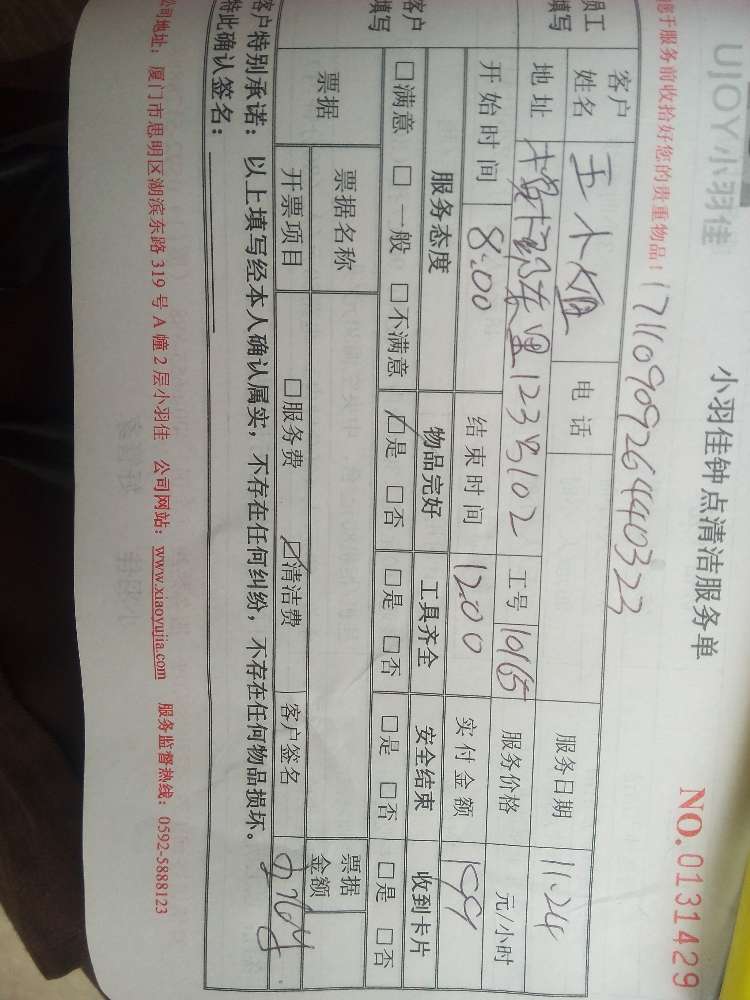 UJOY小羽佳
小羽佳钟点清洁服务单
NO.0131429
于服务前收拾好您的贵重物品!
17110909264440323
员工填写
客户姓名 王小姐 电话 服务日期 11.24
地址 123号102 工号 10165 服务价格 元/小时
开始时间 8:00 结束时间 12:00 实付金额 199
客户填写
服务态度 物品完好 工具齐全 安全结束 收到卡片
□满意 □一般 □不满意 □是 □否 □是 □否 □是 □否 □是 □否
票据 票据名称 票据金额
开票项目 □服务费 □清洁费 客户签名
客户特别承诺:以上填写经本人确认属实,不存在任何纠纷,不存在任何物品损坏。
特此确认签名:
公司地址:厦门市思明区湖滨东路319号A幢2层小羽佳 公司网站:www.xiaoyujia.com 服务监督热线:0592-5888123